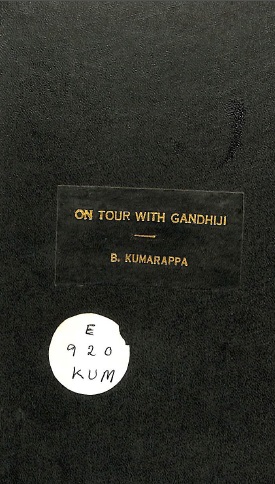 ON TOUR WITH GANDHIJI
B. KUMARAPPA
E
920
KUM